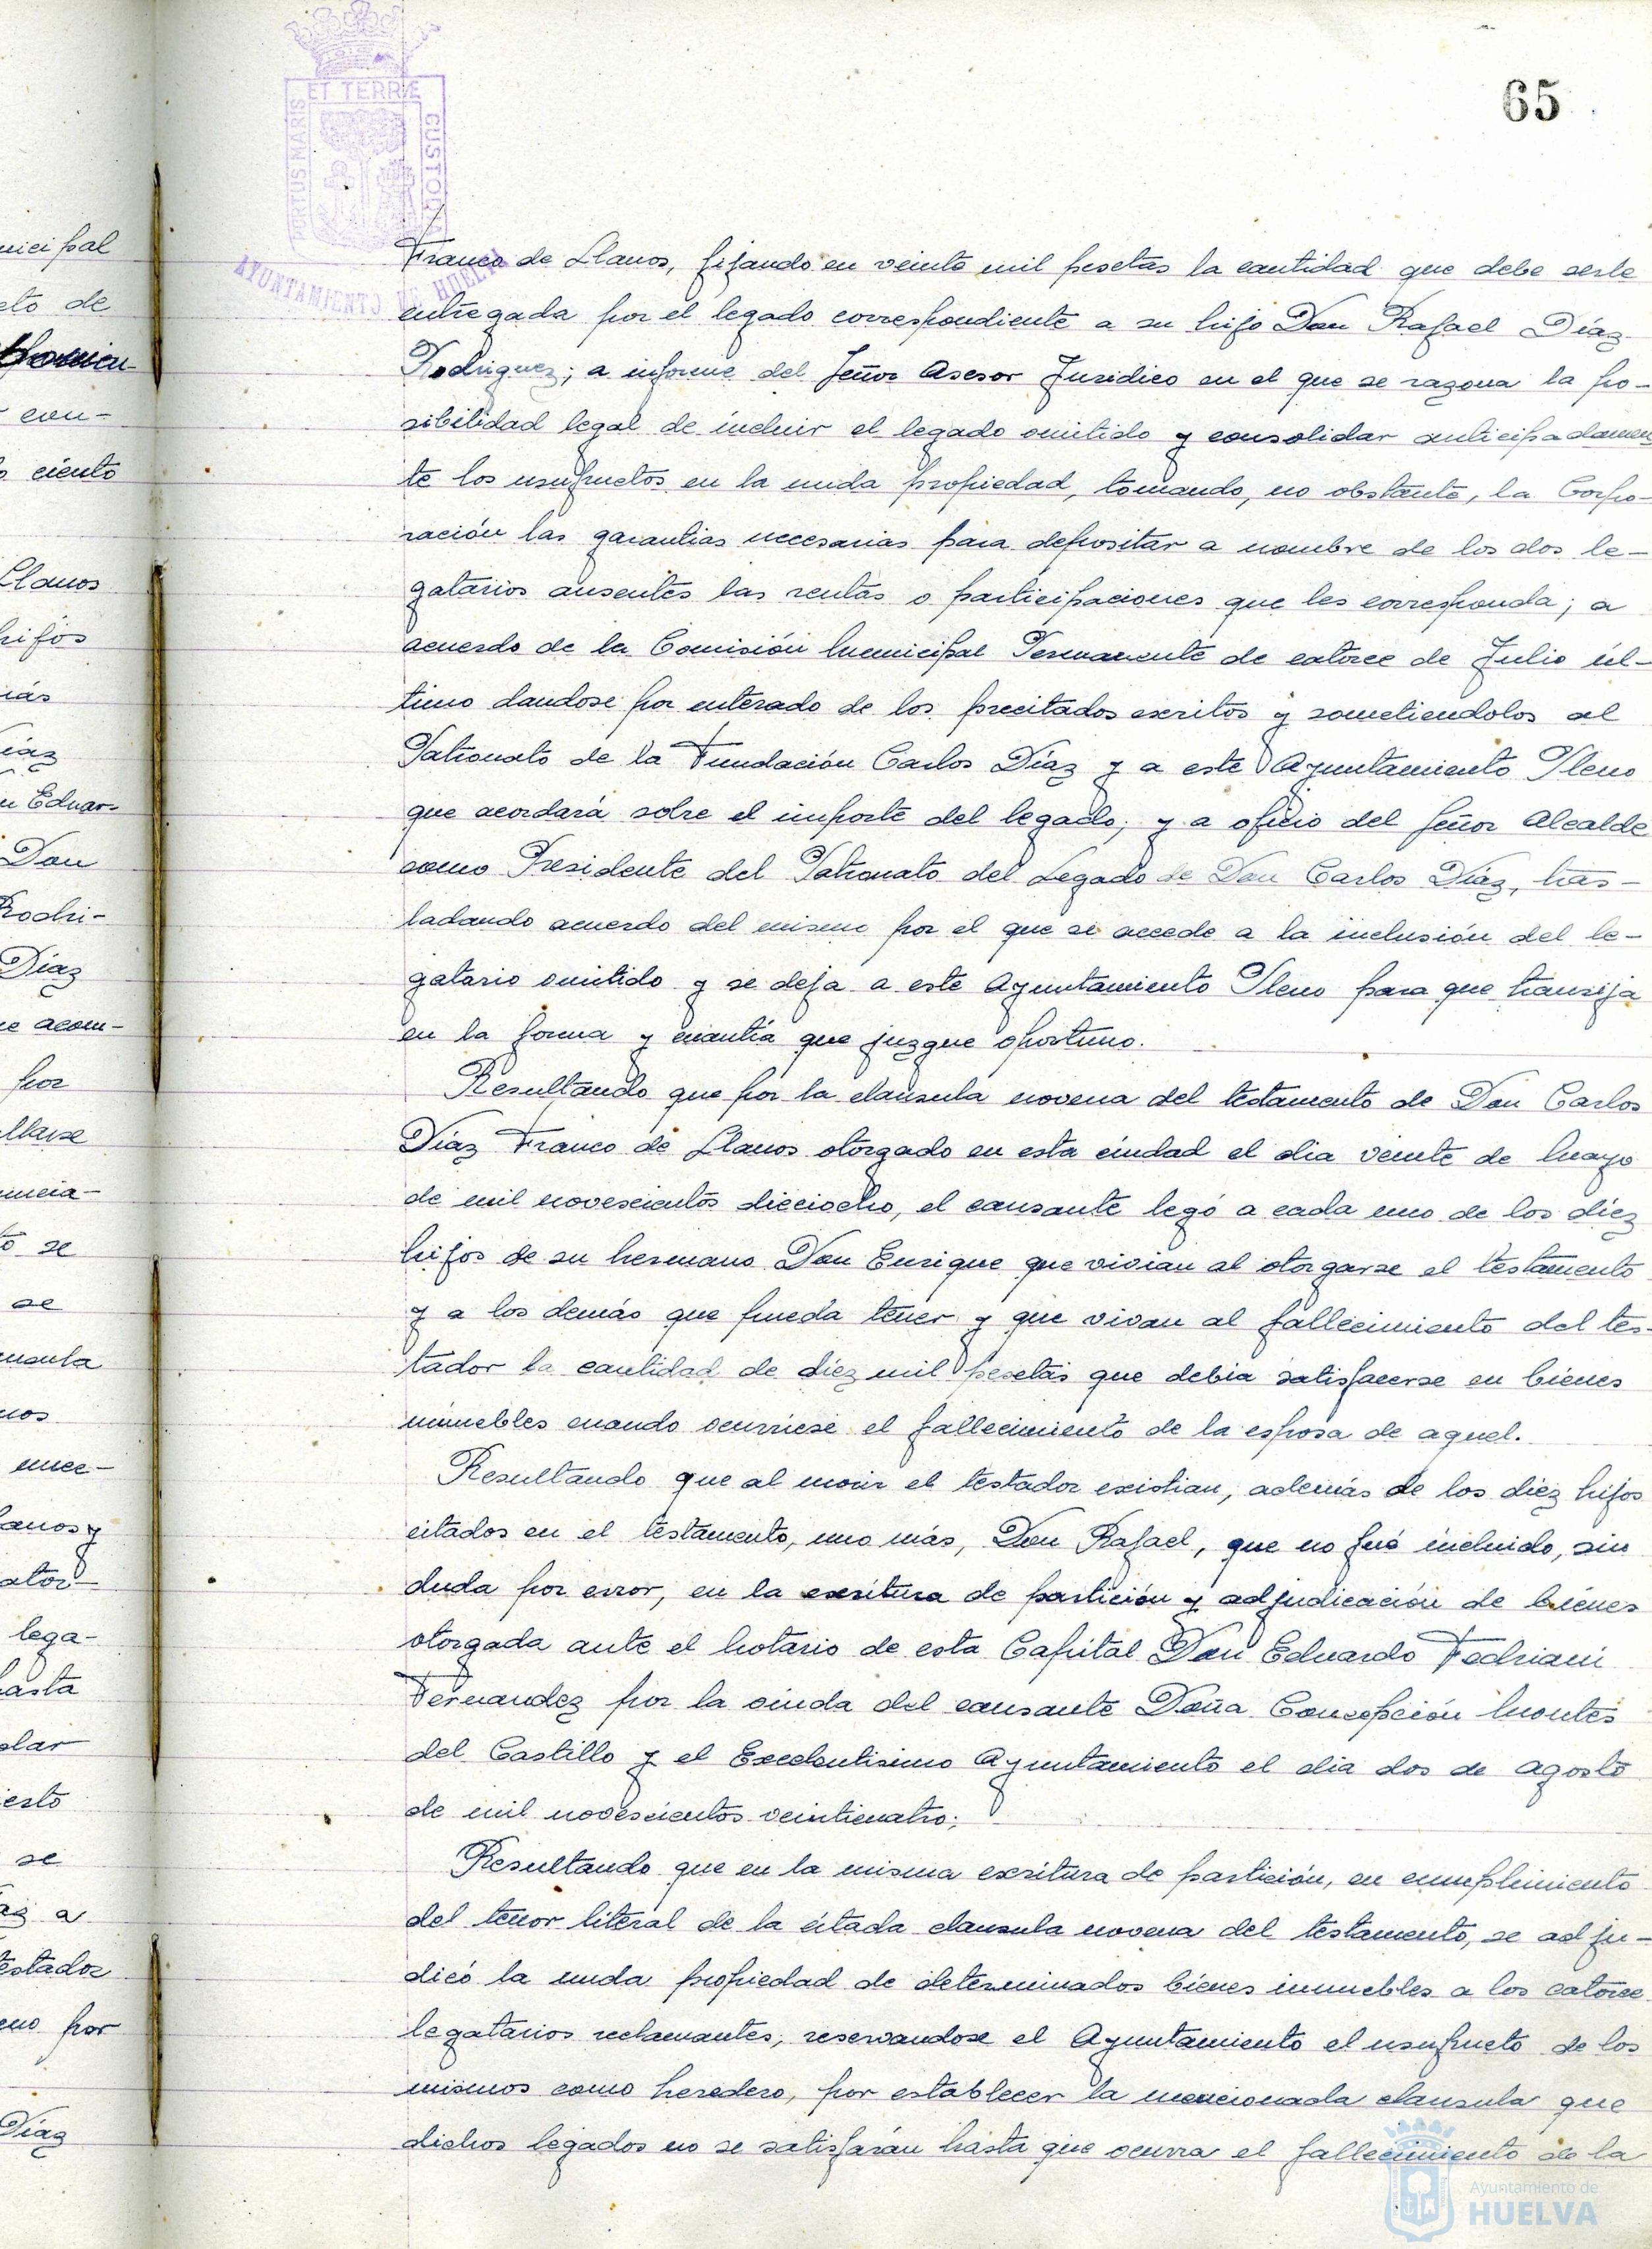 65
ET TERRÆ
PORTUS MARIS
CUSTODIA
AYUNTAMIENTO DE HUELVA
Franco de Llanos, fijando en veinte mil pesetas la cantidad que debe serle
entregada por el legado correspondiente a su hijo Don Rafael Díaz
Rodriguez; a informe del Señor Asesor Jurídico en el que se razona la po-
sibilidad legal de incluir el legado omitido y consolidar anticipadamen
te los usufructos en la nuda propiedad, tomando, no obstante, la Corpo-
ración las garantias necesarias para depositar a nombre de los dos le-
gatarios ausentes las rentas o participaciones que les corresponda; a
acuerdo de la Comisión Municipal Permanente de catorce de Julio úl-
timo dandose por enterado de los precitados escritos y sometiendolos al
Patronato de la Fundación Carlos Díaz y a este Ayuntamiento Pleno
que acordará sobre el importe del legado; y a oficio del Señor Alcalde
como Presidente del Patronato del Legado de Don Carlos Díaz, tras-
ladando acuerdo del mismo por el que se accede a la inclusión del le-
gatario omitido y se deja a este Ayuntamiento Pleno para que transija
en la forma y cuantía que juzgue oportuno.
Resultando que por la clausula novena del testamento de Don Carlos
Díaz Franco de Llanos otorgado en esta ciudad el dia veinte de Mayo
de mil novescientos dieciocho, el causante legó a cada uno de los diez
hijos de su hermano Don Enrique que vivian al otorgarse el testamento
y a los demás que pueda tener y que vivan al fallecimiento del tes-
tador la cantidad de diez mil pesetas que debia satisfacerse en bienes
inmuebles cuando ocurriese el fallecimiento de la esposa de aquel.
Resultando que al morir el testador existian, además de los diez hijos
citados en el testamento, uno más, Don Rafael, que no fué incluido, sin
duda por error, en la escritura de partición y adjudicación de bienes
otorgada ante el Notario de esta Capital Don Eduardo Fedriani
Fernandez por la viuda del causante Doña Concepción Montes
del Castillo y el Excelentisimo Ayuntamiento el dia dos de agosto
de mil novescientos veinticuatro;
Resultando que en la misma escritura de partición, en cumplimiento
del tenor literal de la citada clausula novena del testamento, se adju-
dicó la nuda propiedad de determinados bienes inmuebles a los catorce
legatarios reclamantes, reservandose el Ayuntamiento el usufructo de los
mismos como heredero, por establecer la mencionada clausula que
dichos legados no se satisfarán hasta que ocurra el fallecimiento de la
nicipal
eto de
con-
ciento
Llanos
hijos
más
Díaz
n Eduar-
Don
Rodri-
Díaz
e acom-
por
llarse
to se
se
nos
lega-
hasta
olar
esto
se
a
testador
por
Díaz
Ayuntamiento de
HUELVA